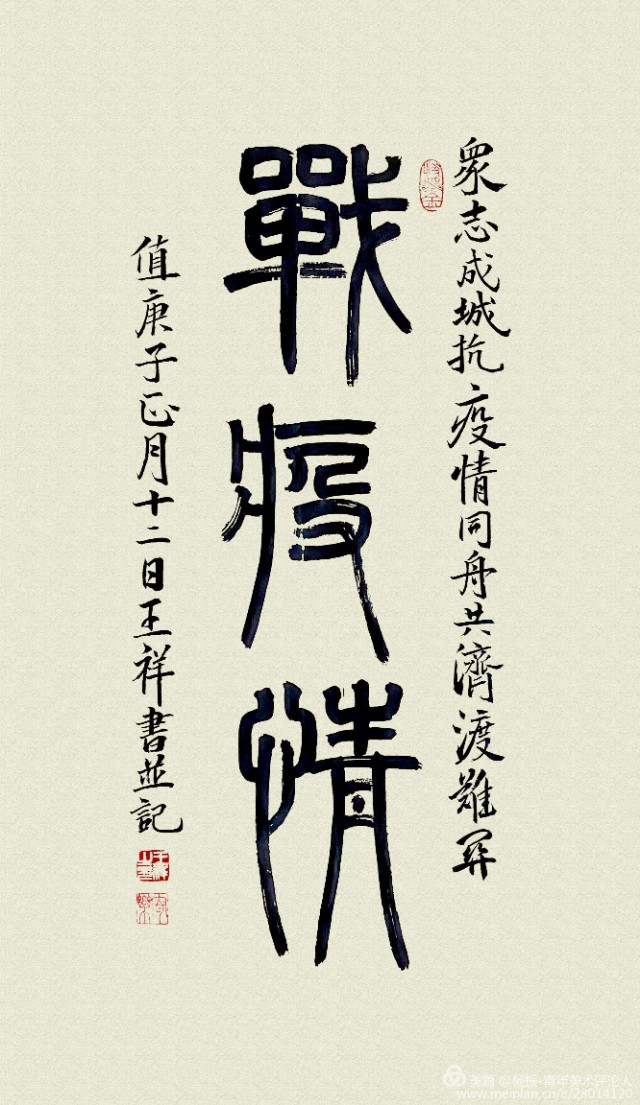 衆志成城抗疫情同舟共濟渡難関
戰疫情
值庚子正月十二日王祥書並記
美篇 @杨振-青年美术评论人
www.meipian.cn/c/28014120